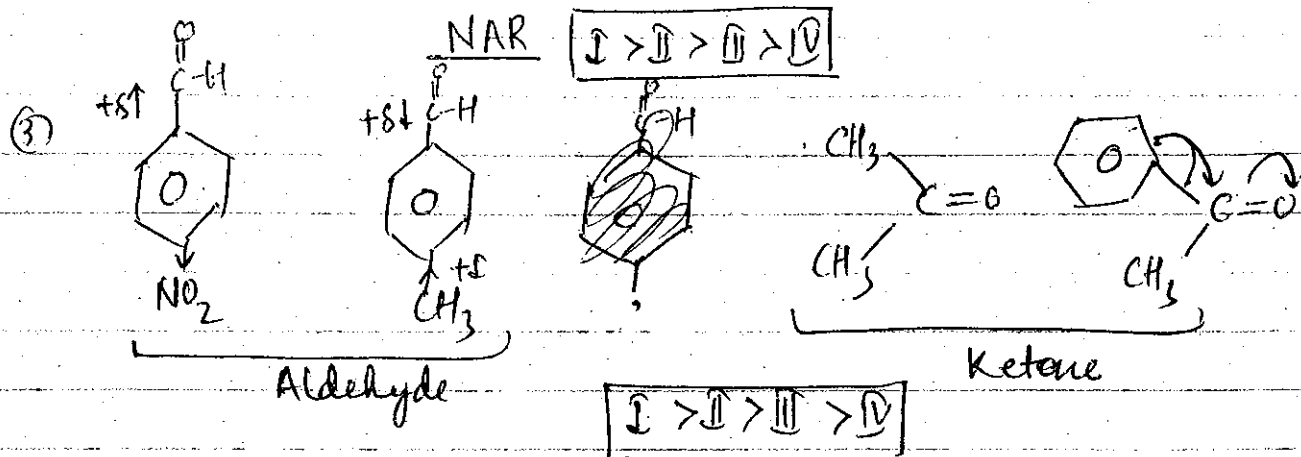 NAR I > II > III > IV
③
O
C-H
+δ↑
NO₂
O
C-H
+δ↓
+I
CH₃
C-H
CH₃
C=O
CH₃
C=O
CH₃
Aldehyde
Ketone
I > II > III > IV